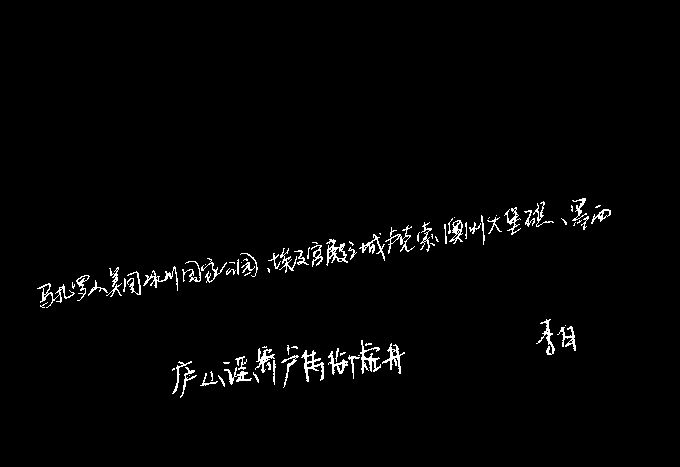 马扎罗山美国冰川国家公园、埃及宫殿之城卢克索、澳洲大堡礁、墨西
庐山谣寄卢侍御虚舟 李白